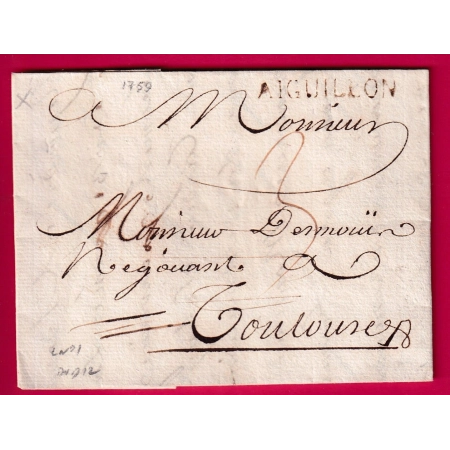 1759
AIGUILLON
A Monsieur
Monsieur Desmoüin
Negotiant a
Toulouse